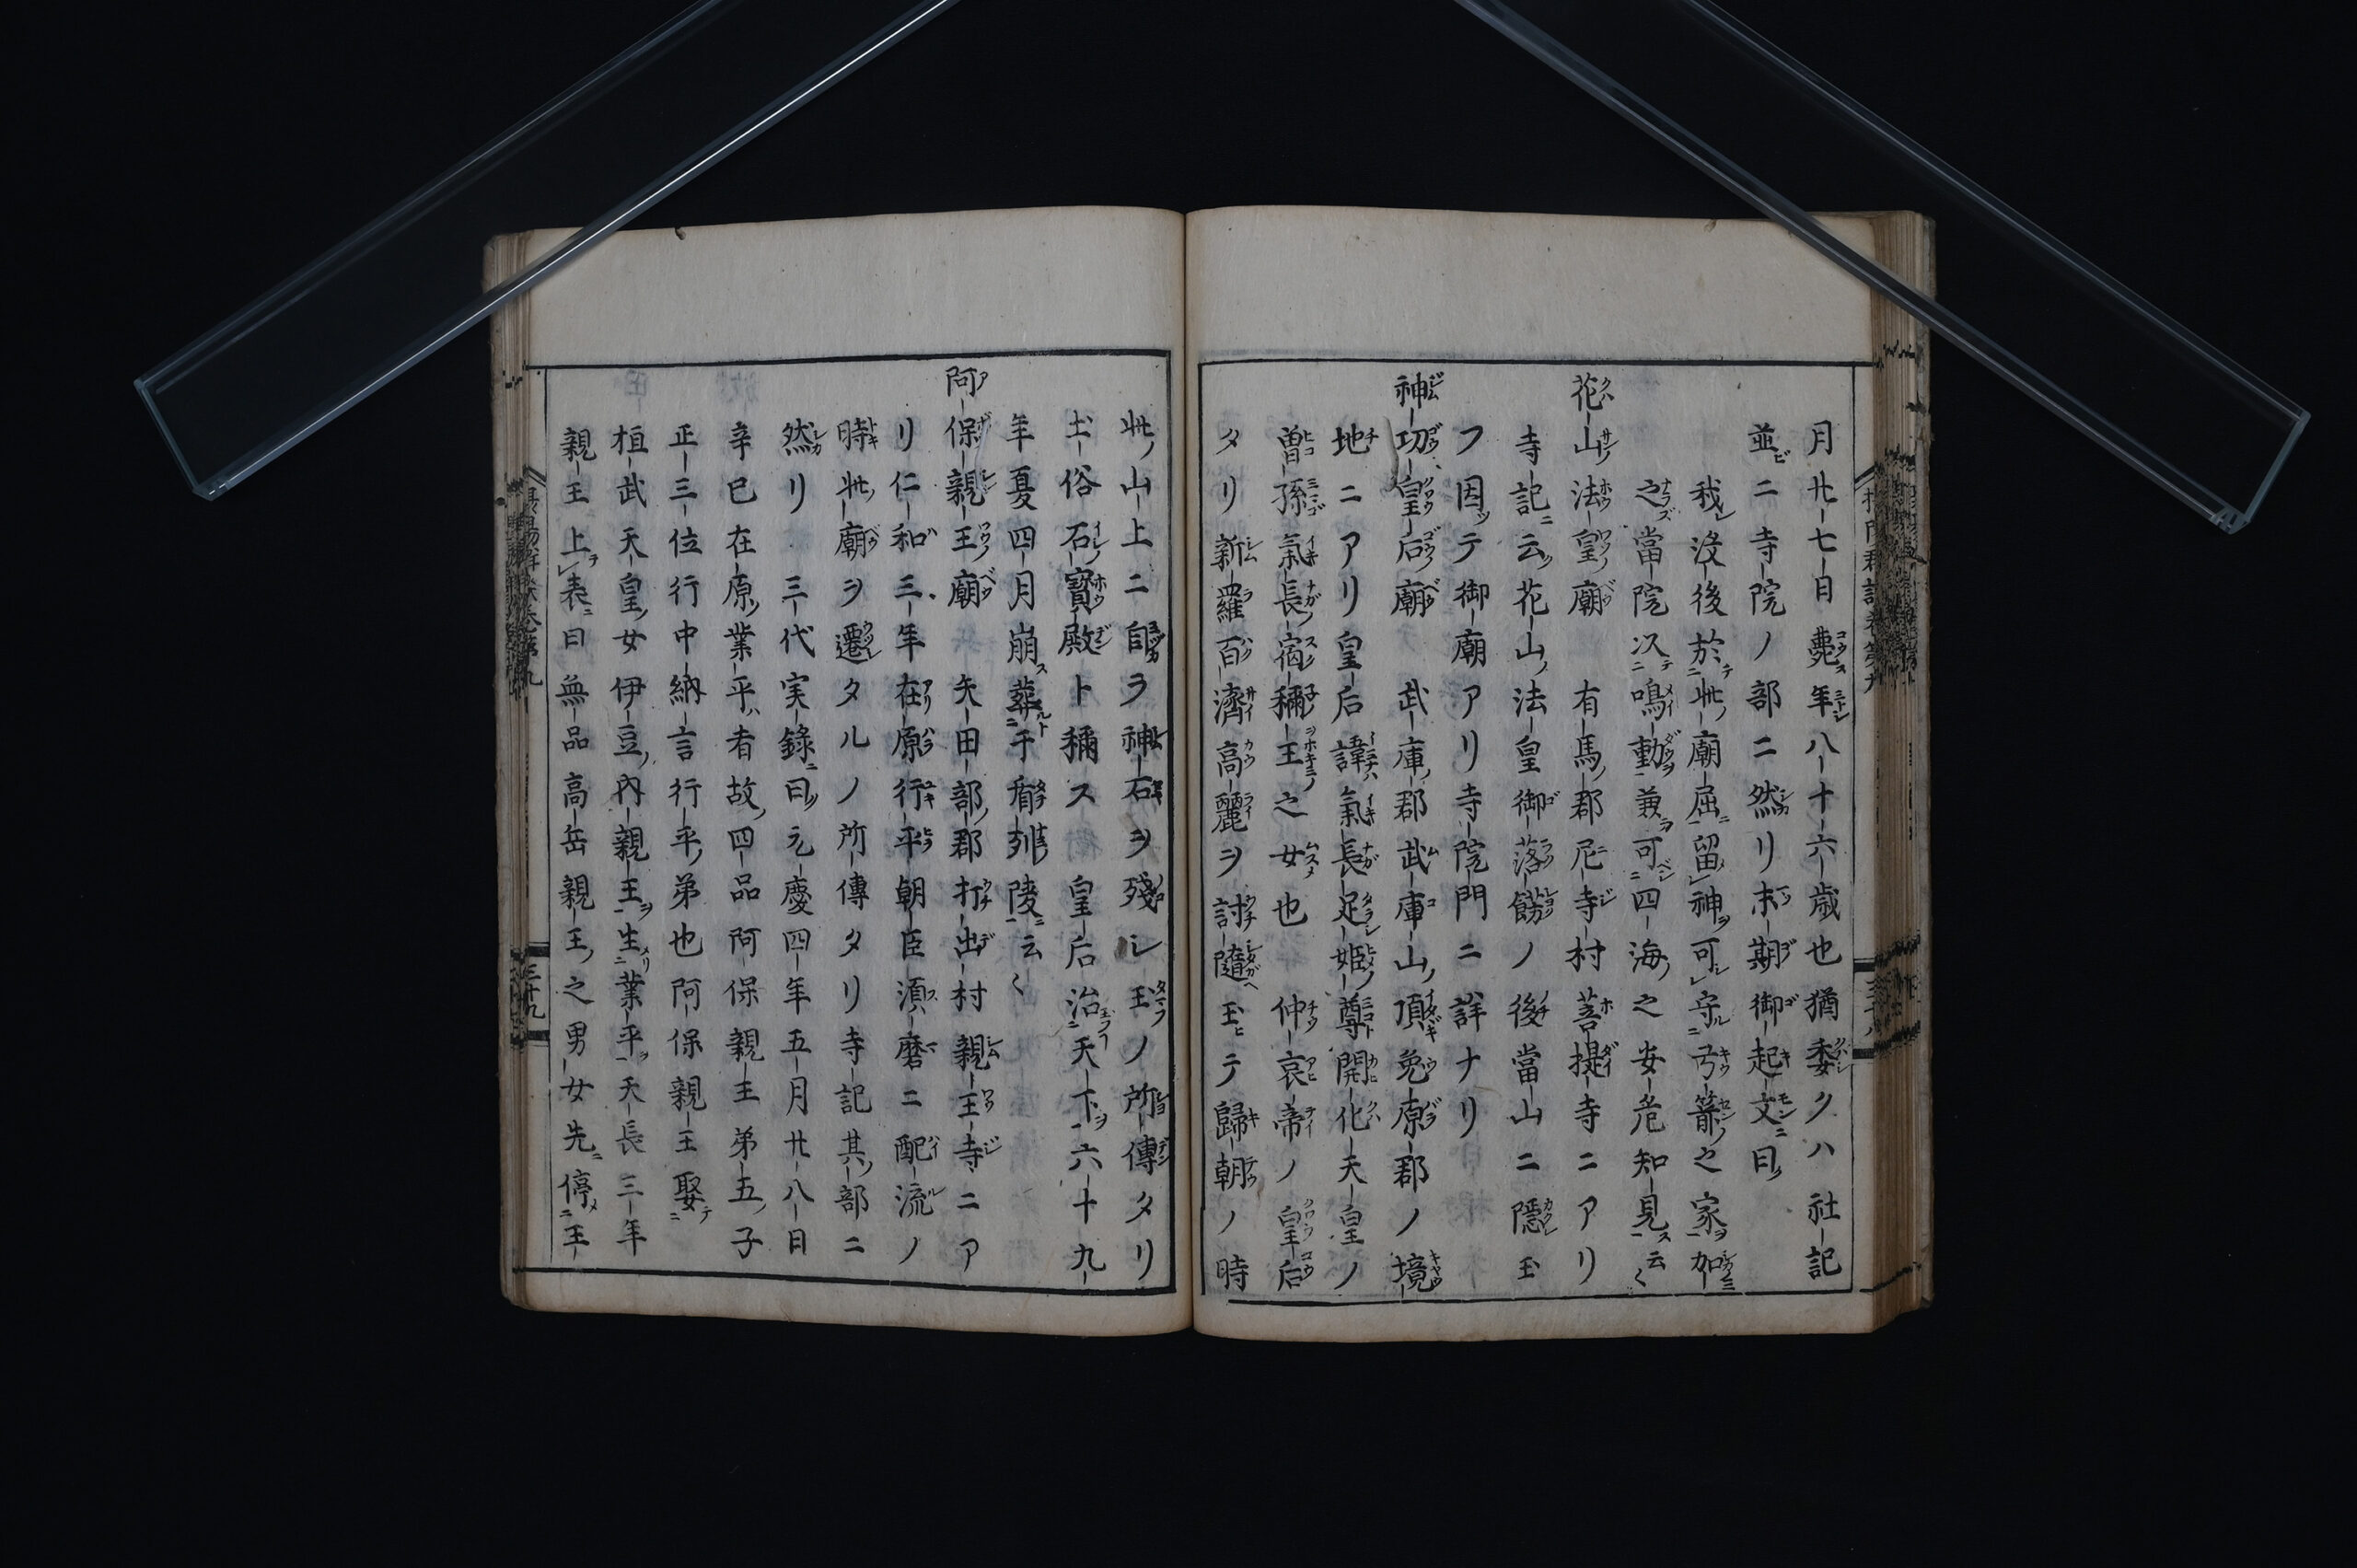 月廿七日薨年八十六歳也猶委クハ社記
並ニ寺院ノ部ニ然リ末期御起文曰
我没後於此廟屈留神可守弓箭之家加
之當院次鳴動兼可四海之安危知見云〻
花山法皇廟 有馬郡尼寺村菩提寺ニアリ
寺記云花山法皇御落餝ノ後當山ニ隠玉
フ因テ御廟アリ寺院門ニ詳ナリ
神功皇后廟 武庫郡武庫山頂兔原郡ノ境
地ニアリ皇后諱氣長足姫尊開化天皇ノ
曽孫氣長宿禰王之女也 仲哀帝ノ皇后
タリ新羅百濟高麗ヲ討隨玉ヒテ歸朝ノ時
此山上ニ自ラ神石ヲ殘シ玉ノ所傳タリ
土俗石寳殿ト稱ス 皇后治天下六十九
年夏四月崩葬于盾列陵云〻
阿保親王廟 矢田部郡打出村親王寺ニア
リ仁和三年在原行平朝臣須磨ニ配流ノ
時此廟ヲ遷タルノ所傳タリ寺記其部ニ
然リ 三代実録曰元慶四年五月廿八日
辛巳在原業平者故四品阿保親王弟五子
正三位行中納言行平弟也阿保親王娶
桓武天皇女伊豆内親王生業平天長三年
親王上表曰無品高岳親王之男女先停王
三十九